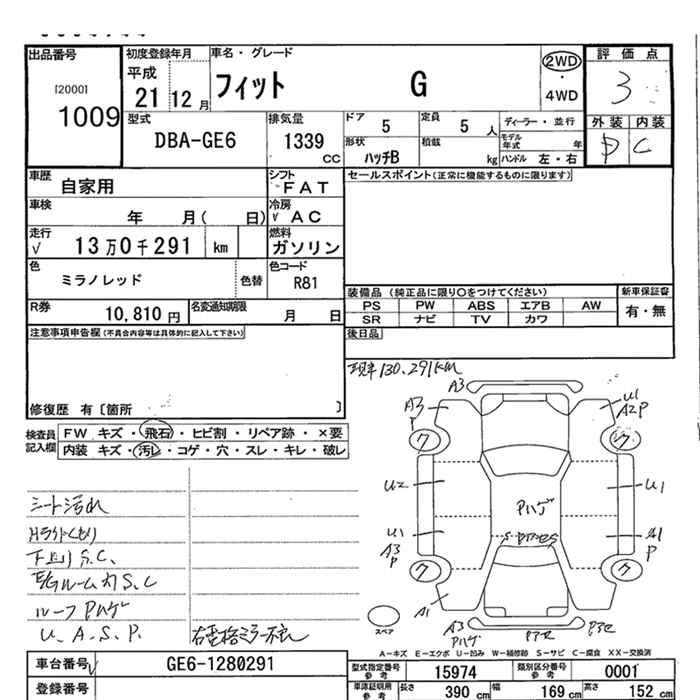 出品番号
[2000]
1009
初度登録年月
平成
21 12 月
車名・グレード
フィット G
2WD
・
4WD
評価点
3
外装 内装
D C
型式
DBA-GE6
排気量
1339
CC
ドア
5
定員
5 人
ディーラー・並行
形状
ハッチB
積載
kg
モデル年式 年
ハンドル 左・右
車歴
自家用
シフト
FAT
セールスポイント(正常に機能するものに限ります)
車検
年 月( 日)
冷房
√ AC
走行
√ 13万0千291 km
燃料
ガソリン
色
ミラノレッド
色替
色コード
R81
装備品 (純正品に限り○をつけてください)
新車保証書
PS PW ABS エアB AW
有・無
SR ナビ TV カワ
R券
10,810 円
名変通知期限
月 日
後日品
注意事項申告欄(不具合内容等は具体的に記入して下さい)
修復歴 有〔箇所 〕
現車130,291km
検査員記入欄
FW キズ・飛石・ヒビ割・リペア跡・×要
内装 キズ・汚レ・コゲ・穴・スレ・キレ・破レ
シート汚れ
下廻りS.C.
E/gルーム内S.C
ルーフPハゲ
U.A.S.P.
A3
A3
P
U1
A2P
ク
ク
U2
U1
Pハゲ
U1
A3
P
A1
P
ク
ク
A1
A3
Pハゲ
スペア
A-キズ E-エクボ U-凹み W-補修跡 S-サビ C-腐食 XX-交換済
車台番号
GE6-1280291
登録番号
型式指定番号
参考
15974
類別区分番号
参考
0001
車庫証明用
参考
長さ 390 cm
幅 169 cm
高さ 152 cm